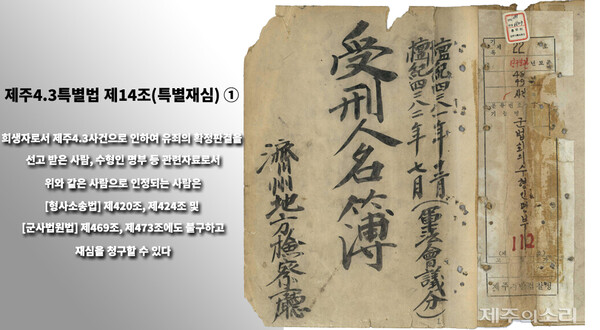 제주4.3특별법 제14조(특별재심) ①
희생자로서 제주4.3사건으로 인하여 유죄의 확정판결을
선고 받은 사람, 수형인 명부 등 관련자료로서
위와 같은 사람으로 인정되는 사람은
[형사소송법] 제420조, 제424조 및
[군사법원법] 제469조, 제473조에도 불구하고
재심을 청구할 수 있다
檀紀四二八一年十二月
檀紀四二八二年七月(軍法會議分)
受刑人名簿
濟州地方檢察廳
22
군법회의수형인명부
112
제주의소리